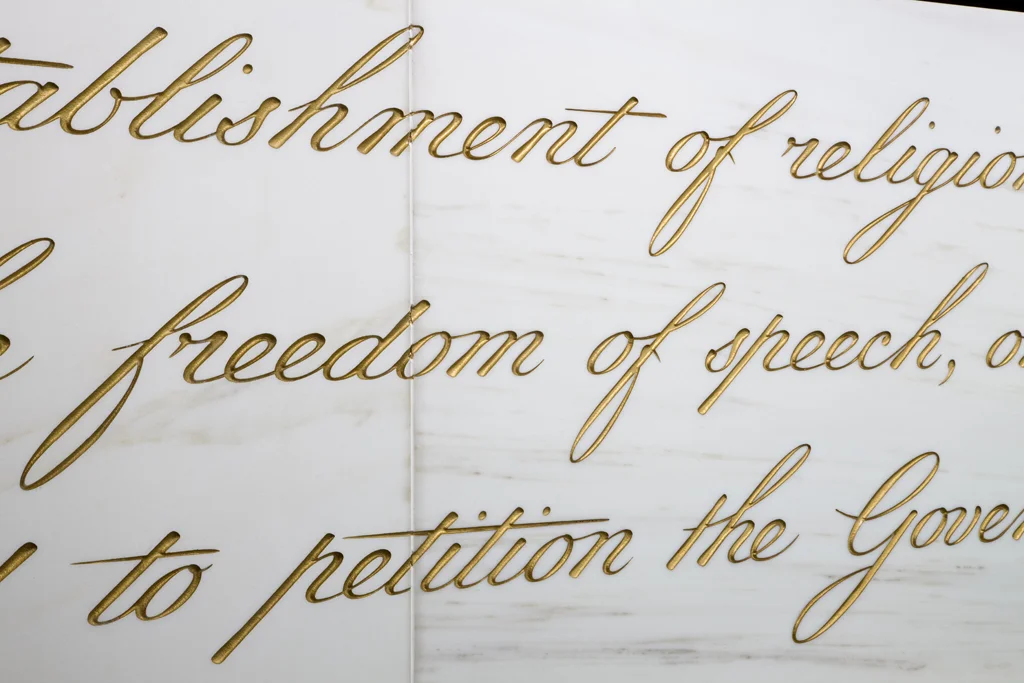 tablishment of religio
freedom of speech, o
to petition the Gover